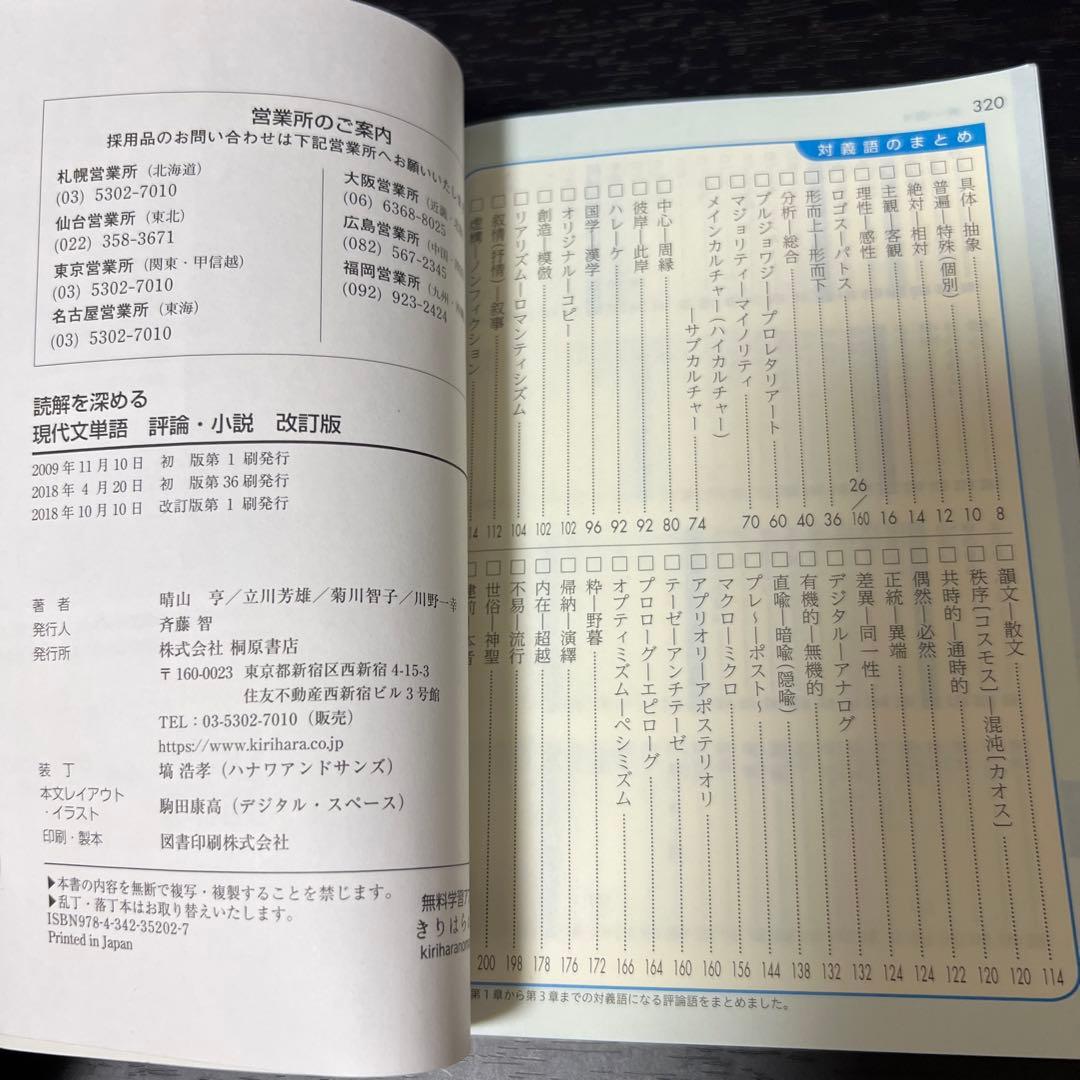 営業所のご案内
採用品のお問い合わせは下記営業所へお願いいたし
札幌営業所（北海道）
(03) 5302-7010
仙台営業所（東北）
(022) 358-3671
東京営業所（関東・甲信越）
(03) 5302-7010
名古屋営業所（東海）
(03) 5302-7010
大阪営業所（近畿・
(06) 6368-8025
広島営業所（中国・
(082) 567-2345
福岡営業所（九州・
(092) 923-2424
読解を深める
現代文単語　評論・小説　改訂版
2009年11月10日　初　版第 1 刷発行
2018年 4 月20日　初　版第36刷発行
2018年10月10日　改訂版第 1 刷発行
著　者　晴山　亨／立川芳雄／菊川智子／川野一幸
発行人　斉藤 智
発行所　株式会社 桐原書店
〒160-0023　東京都新宿区西新宿 4-15-3
住友不動産西新宿ビル 3 号館
TEL：03-5302-7010（販売）
https://www.kirihara.co.jp
装　丁　塙 浩孝（ハナワアンドサンズ）
本文レイアウト
・イラスト　駒田康高（デジタル・スペース）
印刷・製本　図書印刷株式会社
▶本書の内容を無断で複写・複製することを禁じます。
▶乱丁・落丁本はお取り替えいたします。
ISBN978-4-342-35202-7
Printed in Japan
無料学習ア
きりはら
kiriharano
320
対義語のまとめ
□具体―抽象 8
□普遍―特殊（個別） 10
□絶対―相対 12
□主観―客観 14
□理性―感性 16
□ロゴス―パトス 26／160
□形而上―形而下 36
□分析―総合 40
□ブルジョワジー―プロレタリアート 60
□マジョリティ―マイノリティ 70
□メインカルチャー（ハイカルチャー）
―サブカルチャー 74
□中心―周縁 80
□彼岸―此岸 92
□ハレ―ケ 92
□国学―漢学 96
□オリジナル―コピー 102
□創造―模倣 102
□リアリズム―ロマンティシズム 104
□叙情（抒情）―叙事 112
□虚構―ノンフィクション 14
□韻文―散文 114
□秩序［コスモス］―混沌［カオス］ 120
□共時的―通時的 120
□偶然―必然 122
□正統―異端 124
□差異―同一性 124
□デジタル―アナログ 132
□有機的―無機的 132
□直喩―暗喩（隠喩） 138
□プレ～―ポスト～ 144
□マクロ―ミクロ 156
□アプリオリ―アポステリオリ 160
□テーゼ―アンチテーゼ 160
□プロローグ―エピローグ 164
□オプティミズム―ペシミズム 166
□粋―野暮 172
□帰納―演繹 176
□内在―超越 178
□不易―流行 198
□世俗―神聖 200
□建前―本音
第１章から第３章までの対義語になる評論語をまとめました。